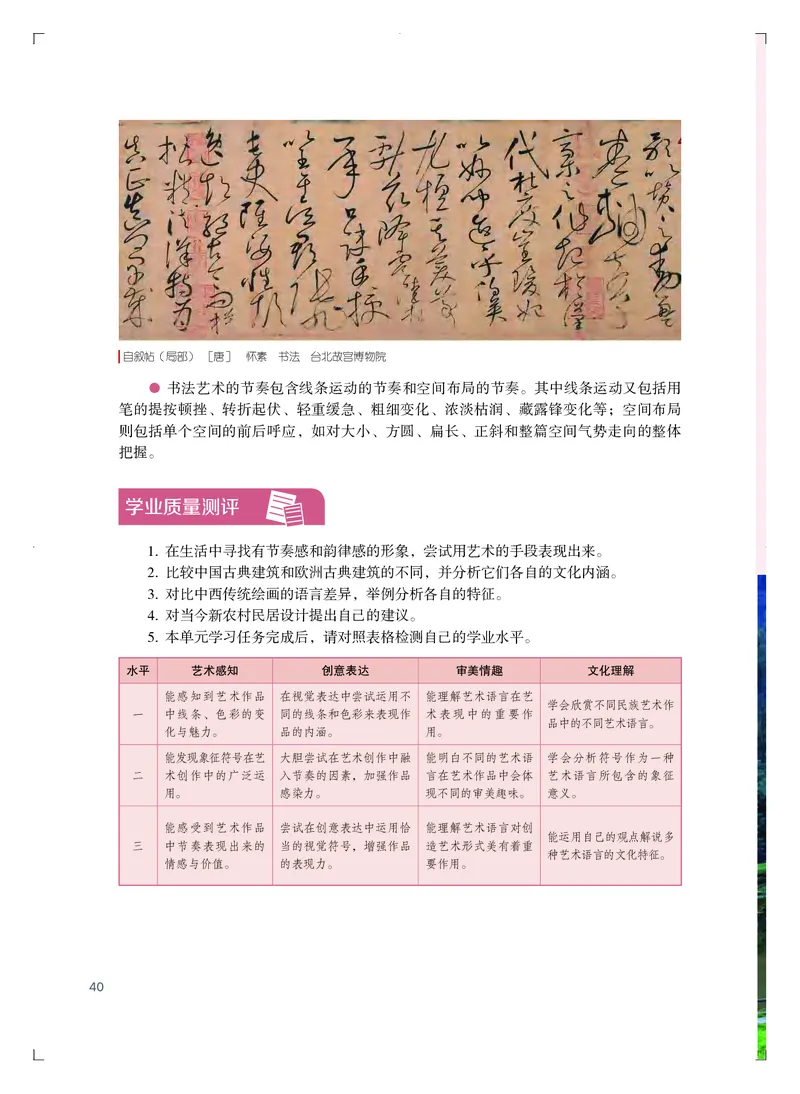 自叙帖（局部） ［唐］ 怀素 书法 台北故宫博物院
● 书法艺术的节奏包含线条运动的节奏和空间布局的节奏。其中线条运动又包括用
笔的提按顿挫、转折起伏、轻重缓急、粗细变化、浓淡枯润、藏露锋变化等；空间布局
则包括单个空间的前后呼应，如对大小、方圆、扁长、正斜和整篇空间气势走向的整体
把握。
学业质量测评
1. 在生活中寻找有节奏感和韵律感的形象，尝试用艺术的手段表现出来。
2. 比较中国古典建筑和欧洲古典建筑的不同，并分析它们各自的文化内涵。
3. 对比中西传统绘画的语言差异，举例分析各自的特征。
4. 对当今新农村民居设计提出自己的建议。
5. 本单元学习任务完成后，请对照表格检测自己的学业水平。
水平 艺术感知 创意表达 审美情趣 文化理解
一
能感知到艺术作品
中线条、色彩的变
化与魅力。
在视觉表达中尝试运用不
同的线条和色彩来表现作
品的内涵。
能理解艺术语言在艺
术表现中的重要作
用。
学会欣赏不同民族艺术作
品中的不同艺术语言。
二
能发现象征符号在艺
术创作中的广泛运
用。
大胆尝试在艺术创作中融
入节奏的因素，加强作品
感染力。
能明白不同的艺术语
言在艺术作品中会体
现不同的审美趣味。
学会分析符号作为一种
艺术语言所包含的象征
意义。
三
能感受到艺术作品
中节奏表现出来的
情感与价值。
尝试在创意表达中运用恰
当的视觉符号，增强作品
的表现力。
能理解艺术语言对创
造艺术形式美有着重
要作用。
能运用自己的观点解说多
种艺术语言的文化特征。
40